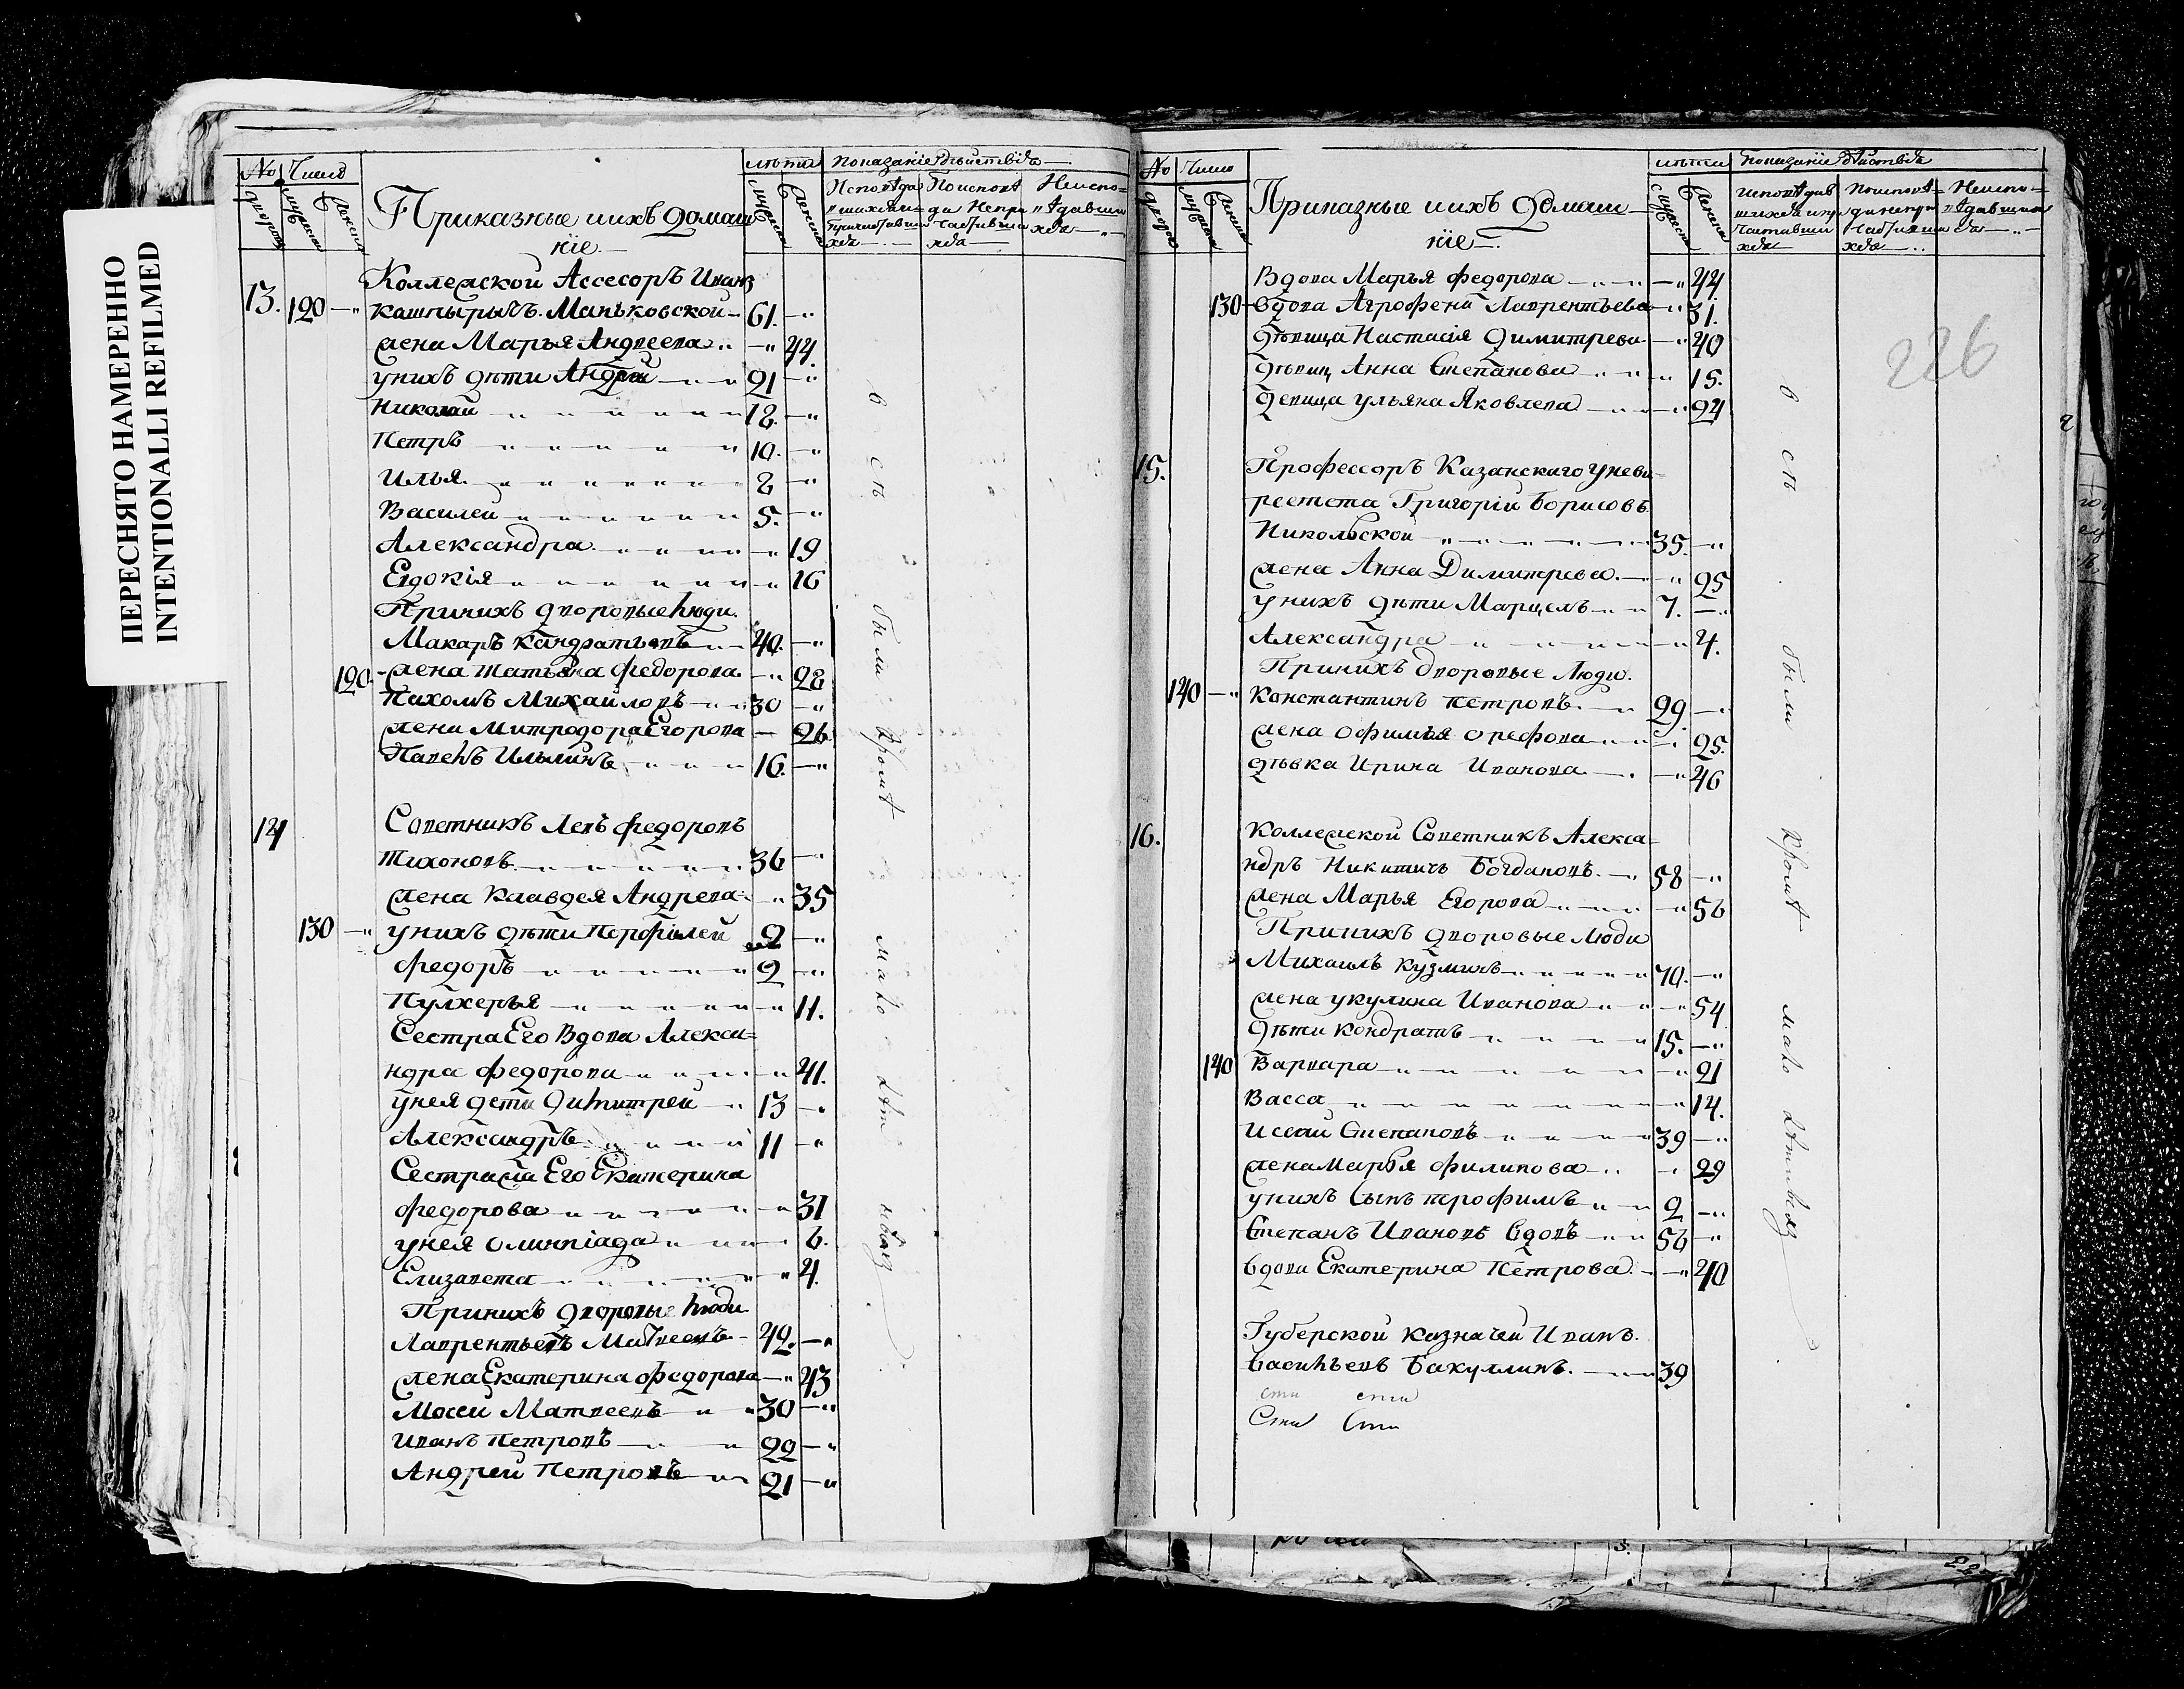 ПЕРЕСНЯТО НАМЕРЕННО
INTENTIONALLI REFILMED
№ Число лѣта Показанїе дѣйствїя
Приказные и ихъ домаш
нїе
13. 120 Коллежской Ассесоръ Иванъ
Маньковской 61.
жена Марья Андреева 44.
у нихъ дѣти Андрей 21
Николай 12.
Петръ 10.
Илья 8
Василей 5.
Александра 19
Евдокїя 16
При нихъ дворовые люди
Макаръ Кандратьевъ 40.
120 жена Татьяна Федорова 28
Пахомъ Михайловъ 30
жена Митродора Егорова 26
Павелъ Ильинъ 16.
14 Советникъ Левъ Федоровъ
Тихоновъ 36
жена Клавдея Андрева 35
130 у нихъ дѣти Перфилей 9
Федоръ 2
Пулхерья 11.
Сестра Его Вдова Алекса=
ндра Федорова 41.
у нея дети Димитрей 13
Александръ 11
Сестра Его Екатерина
Федорова 31
у нея Олимпїада 6.
Елизавета 4.
При нихъ дворовые люди
Лаврентьевъ Матвеевъ 42.
жена Екатерина Федорова 43
Мосей Матвеевъ 30
Иванъ Петровъ 22
Андрей Петровъ 21
всѣ были кромѣ мало лѣтныхъ
№ Число лѣта Показанїе дѣйствїя
Приказные и ихъ домаш
нїе
226
Вдова Марья Федорова 44
130 вдова Агрофена Лаврентьева 31.
дѣвица Настасїя Димитрева 40
дѣвиц Анна Степанова 15.
девица Ульяна Яковлева 24
15. Профессоръ Казанскаго Униве
рсетета Григорїй Борисовъ
Никольской 35.
жена Анна Димитрева 25
у нихъ дѣти Марцелъ 7.
Александра 4.
При нихъ дворовые Люди
140 Константинъ Петровъ 29.
жена Офимья Орефова 25.
дѣвка Ирина Иванова 46
16. Коллежской Советникъ Алекса=
ндръ Никитичь Богдановъ 58
жена Марья Егорова 56
При нихъ дворовые Люди
Михаилъ Кузминъ 70.
жена Укулина Иванова 54
дѣти Кондратъ 15.
140 Варвара 21
Васса 14.
Иссай Степановъ 39
жена Марья Филипова 29
у нихъ сынъ Трофимъ 2
Степанъ Ивановъ вдовъ 56
вдова Екатерина Петрова 40
Губерской казначей Иванъ
Васильевъ Бакуллинъ 39
всѣ были кромѣ мало лѣтныхъ